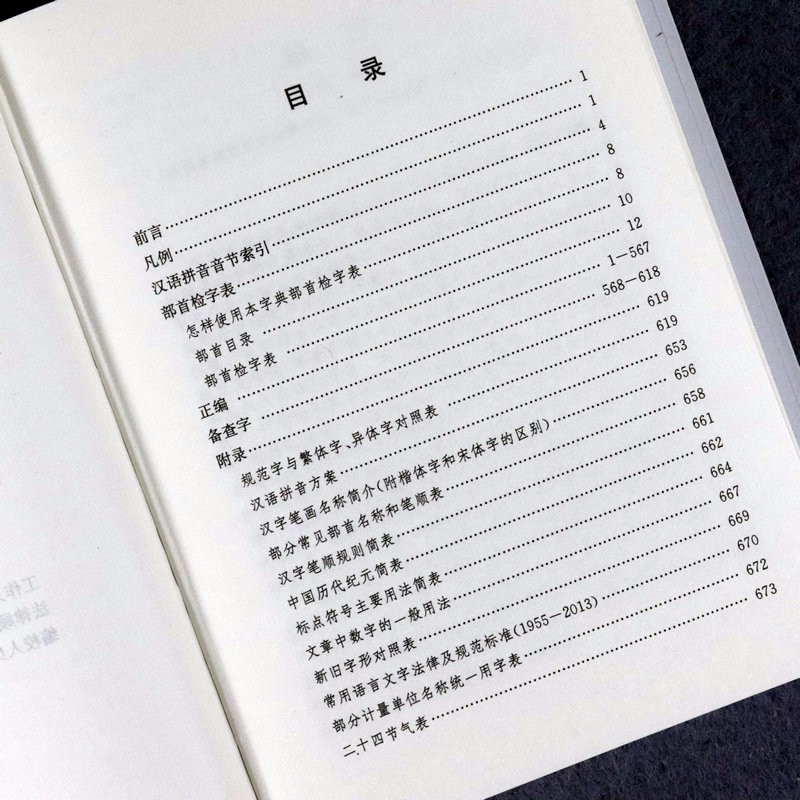 目 录
前言 1
凡例 1
汉语拼音音节索引 4
部首检字表 8
怎样使用本字典部首检字表 8
部首目录 10
部首检字表 12
正编 1—567
备查字 568—618
附录 619
规范字与繁体字、异体字对照表 619
汉语拼音方案 653
汉字笔画名称简介(附楷体字和宋体字的区别) 656
部分常见部首名称和笔顺表 658
汉字笔顺规则简表 661
中国历代纪元简表 662
标点符号主要用法简表 664
文章中数字的一般用法 667
新旧字形对照表 669
常用语言文字法律及规范标准(1955—2013) 670
部分计量单位名称统一用字表 672
二十四节气表 673